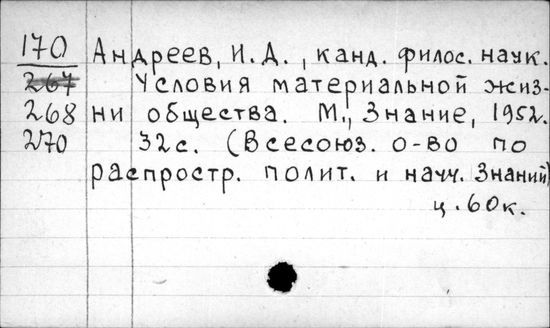 170 Андреев, И.Д., канд. филос. наук.
267 Условия материальной жиз-
268 ни общества. М., Знание, 1952.
270 32с. (Всесоюз. о-во по
распростр. полит. и научн. Знаний)
ц. 60к.